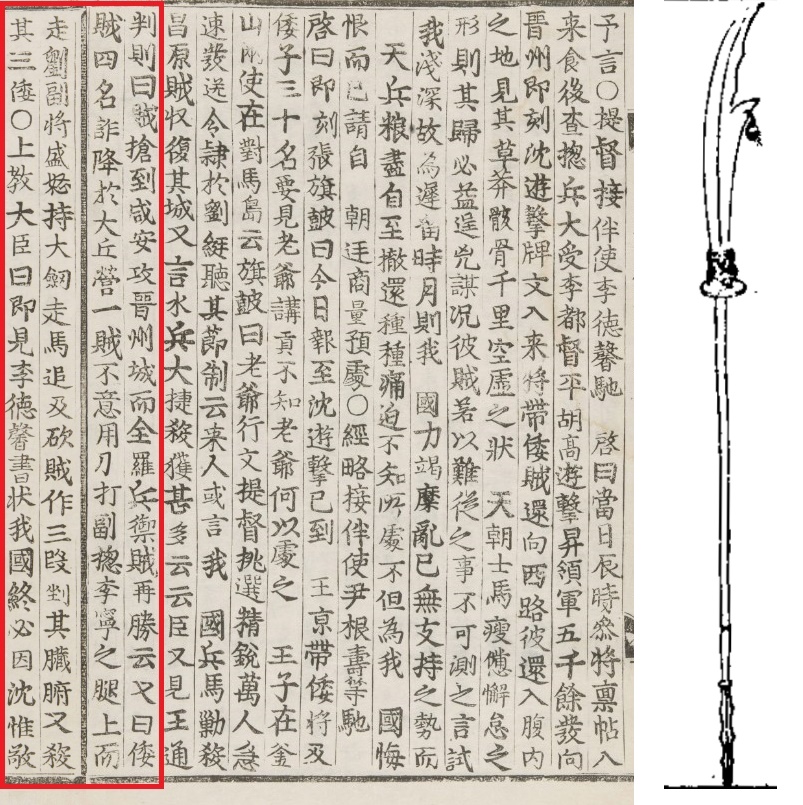 予言○提督接伴使李德馨馳　啓曰當日辰時叅將稟帖入
来食後查揔兵大受李都督平胡高遊擊昇領軍五千餘發向
晉州即刻沈遊擊牌文入来將帶倭賊還向西路彼還入腹内
之地見其草莽骸骨千里空虛之狀　天朝士馬瘦憊懈怠之
形則其歸必益逞兇謀况彼賊若以難從之事不可測之言試
我淺深故為遲畱時月則我　國力竭糜亂已無支持之勢而
天兵粮盡自至撤還種種痛迫不知所處不但為我　國悔
恨而已請自　朝廷商量預處○經略接伴使尹根壽等馳
啓曰即刻張旗皷曰今日報至沈遊擊已到　王京帶倭將及
倭子三十名要見老爺講貢不知老爺何以處之　王子在釜
山使在對馬島云旗皷曰老爺行文提督挑選精銳萬人急
速發送令隷於劉綎聽其節制云来人或言我　國兵馬勦殺
昌原賊收復其城又言水兵大捷殺獲甚多云云臣又見王通
判則曰賊搶到咸安攻晉州城而全羅兵禦賊再勝云又曰倭
賊四名詐降於大丘營一賊不意用刀打副揔李寧之腿上而
走劉副將盛怒持大劒走馬追及砍賊作三段刲其臟腑又殺
其三倭○上教大臣曰即見李德馨書状我國終必因沈惟敬